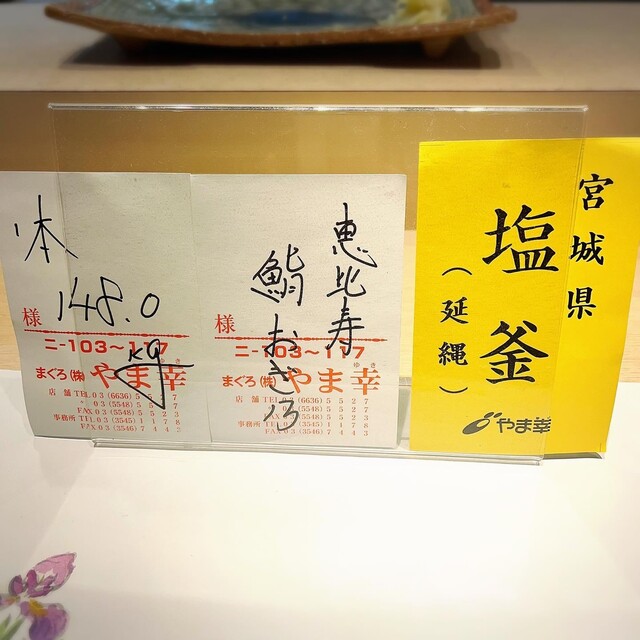 本
148.0
kg
様
ニ-103~117
ゆき
まぐろ(株)やま幸
店舗 TEL 03 (6636) 5527
03 (5548) 5527
FAX 03 (5548) 5523
事務所 TEL 03 (3545) 1178
FAX 03 (3546) 7443
恵比寿
鮨おぎ乃
様
ニ-103~117
ゆき
まぐろ(株)やま幸
店舗 TEL 03 (6636) 5527
03 (5548) 5527
FAX 03 (5548) 5523
事務所 TEL 03 (3545) 1178
FAX 03 (3546) 7443
宮城県
塩釜
(延縄)
やま幸